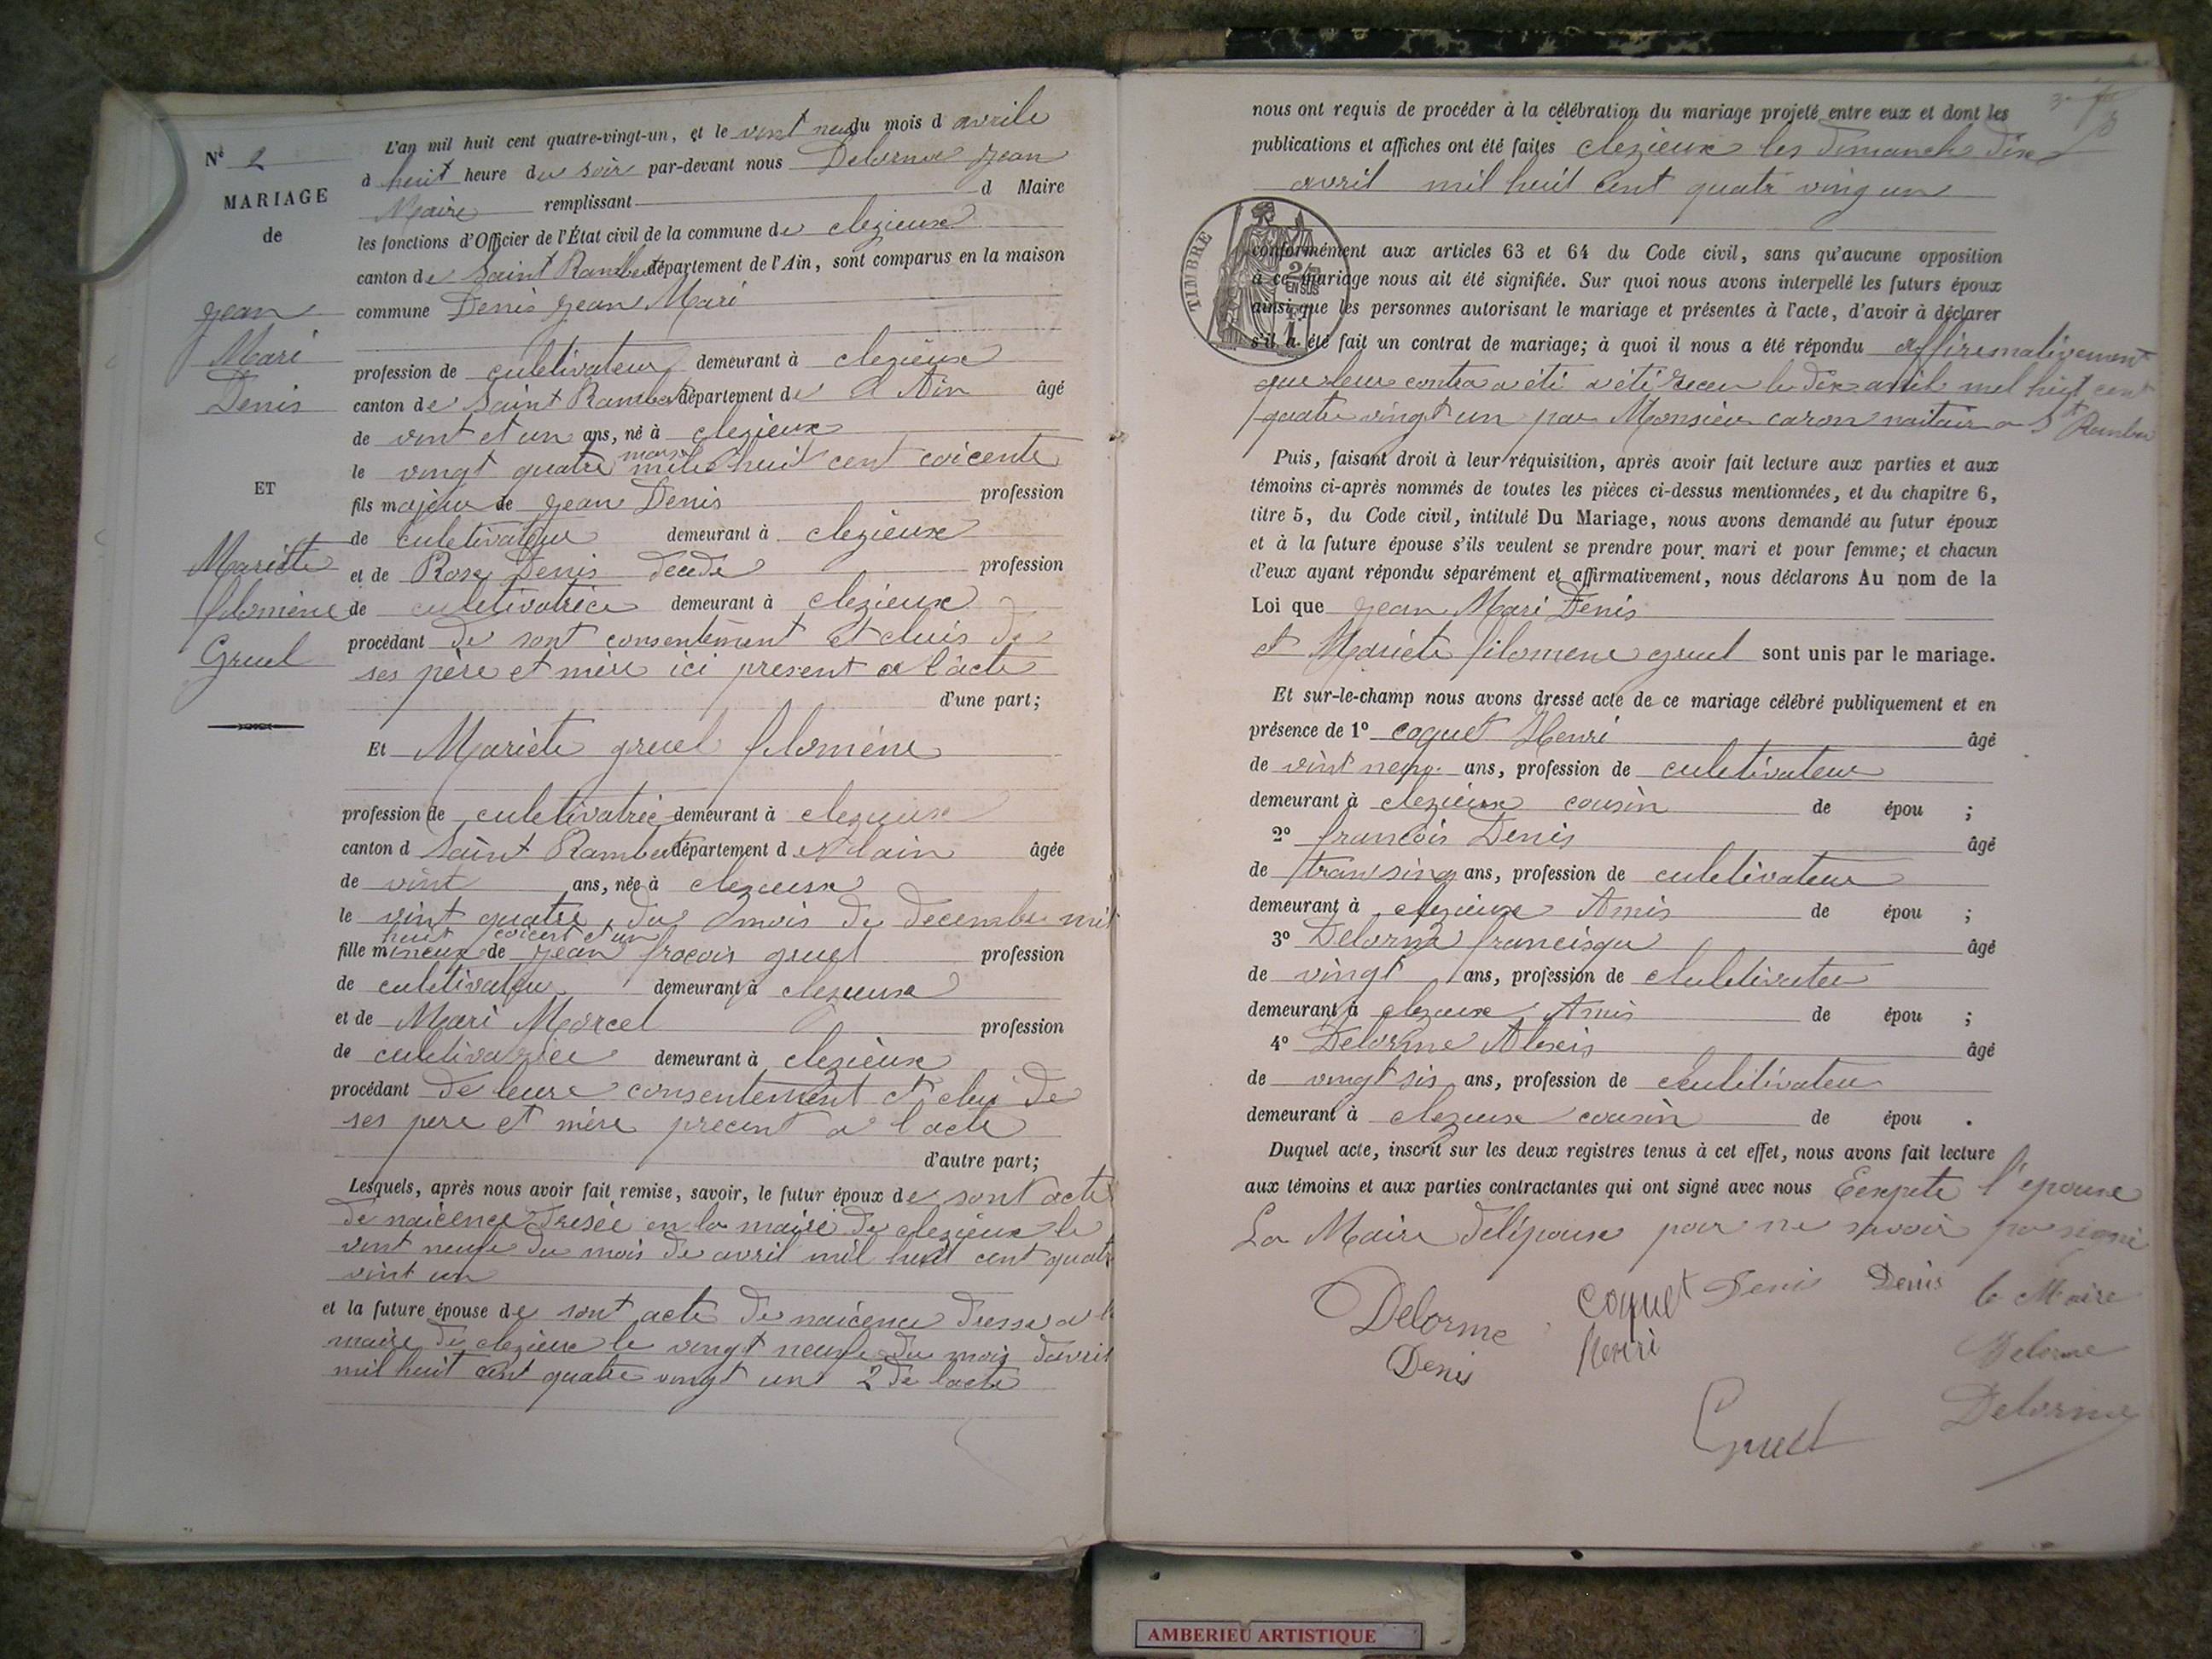 N° 2
MARIAGE
de
Jean
Mari
Denis
ET
Mariete
filomène
Gruel
L'an mil huit cent quatre-vingt-un, et le vint neu du mois d avrile
à huit heure du soir par-devant nous Delorme Jean
Maire remplissant d Maire
les fonctions d'Officier de l'État civil de la commune de clezieux
canton de Saint Rambert département de l'Ain, sont comparus en la maison
commune Denis Jean Mari
profession de culetivateur demeurant à clezieux
canton de Saint Rambert département de l Ain âgé
de vint et un ans, né à clezieux
le vingt quatre mars mile huit cent coicente
fils majeur de Jean Denis profession
de culetivateur demeurant à clezieux
et de Rose Denis decede profession
de culetivatrice demeurant à clezieux
procédant de sont consentement et cluis de
ses père et mère ici present a l'acte
d'une part;
Et Mariete gruel filomène
profession de culetivatrice demeurant à clezieux
canton d Saint Rambert département d e l'ain âgée
de vint ans, née à clezieux
le vint quatre du mois de decembre mil
huit coicent et un
fille mineux de Jean fracois gruel profession
de culetivateur demeurant à clezieux
et de Mari Marcel profession
de culetivatrice demeurant à clezieux
procédant de leure consentement et clui de
ses pere et mère precent a l'acte
d'autre part;
Lesquels, après nous avoir fait remise, savoir, le futur époux de sont acte
de naicence dresée en la mairie de clezieux le
vint neufe du mois de avril mil huit cent quatr
vint un
et la future épouse de sont acte de naicence dresse a l
maire de clezieux le vingt neufe du mois davril
mil huit cent quatre vingt un 2 de l'acte
nous ont requis de procéder à la célébration du mariage projeté entre eux et dont les
publications et affiches ont été faites clezieux les dimanche dix
avril mil huit cent quatr ving un
TIMBRE
conformément aux articles 63 et 64 du Code civil, sans qu'aucune opposition
à ce mariage nous ait été signifiée. Sur quoi nous avons interpellé les futurs époux
ainsi que les personnes autorisant le mariage et présentes à l'acte, d'avoir à déclarer
s'il a été fait un contrat de mariage; à quoi il nous a été répondu affiremativement
que leur contra a éti a éti receu le dix avril mil huit cent
quatre vingt un par Monsieu caron naitair a St Rambe
Puis, faisant droit à leur réquisition, après avoir fait lecture aux parties et aux
témoins ci-après nommés de toutes les pièces ci-dessus mentionnées, et du chapitre 6,
titre 5, du Code civil, intitulé Du Mariage, nous avons demandé au futur époux
et à la future épouse s'ils veulent se prendre pour mari et pour femme; et chacun
d'eux ayant répondu séparément et affirmativement, nous déclarons Au nom de la
Loi que Jean Mari Denis
et Mariete filomene gruel sont unis par le mariage.
Et sur-le-champ nous avons dressé acte de ce mariage célébré publiquement et en
présence de 1° coquet Henri âgé
de vint neuf ans, profession de culetivateur
demeurant à clezieux cousin de épou ;
2° francois Denis âgé
de transinq ans, profession de culetivateur
demeurant à clezieux Amis de épou ;
3° Delorme francisque âgé
de vingt ans, profession de culetivateu
demeurant à clezieux Amis de épou ;
4° Delorme Alexis âgé
de vingt sis ans, profession de culitivateu
demeurant à clezieux cousin de épou .
Duquel acte, inscrit sur les deux registres tenus à cet effet, nous avons fait lecture
aux témoins et aux parties contractantes qui ont signé avec nous Eexpete l'epouse
La Maire delépouse pour ne savoir pa signé
Delorme coquet Denis Denis le Maire
Denis Henri Delorme
Gruel Delorme
AMBERIEU ARTISTIQUE